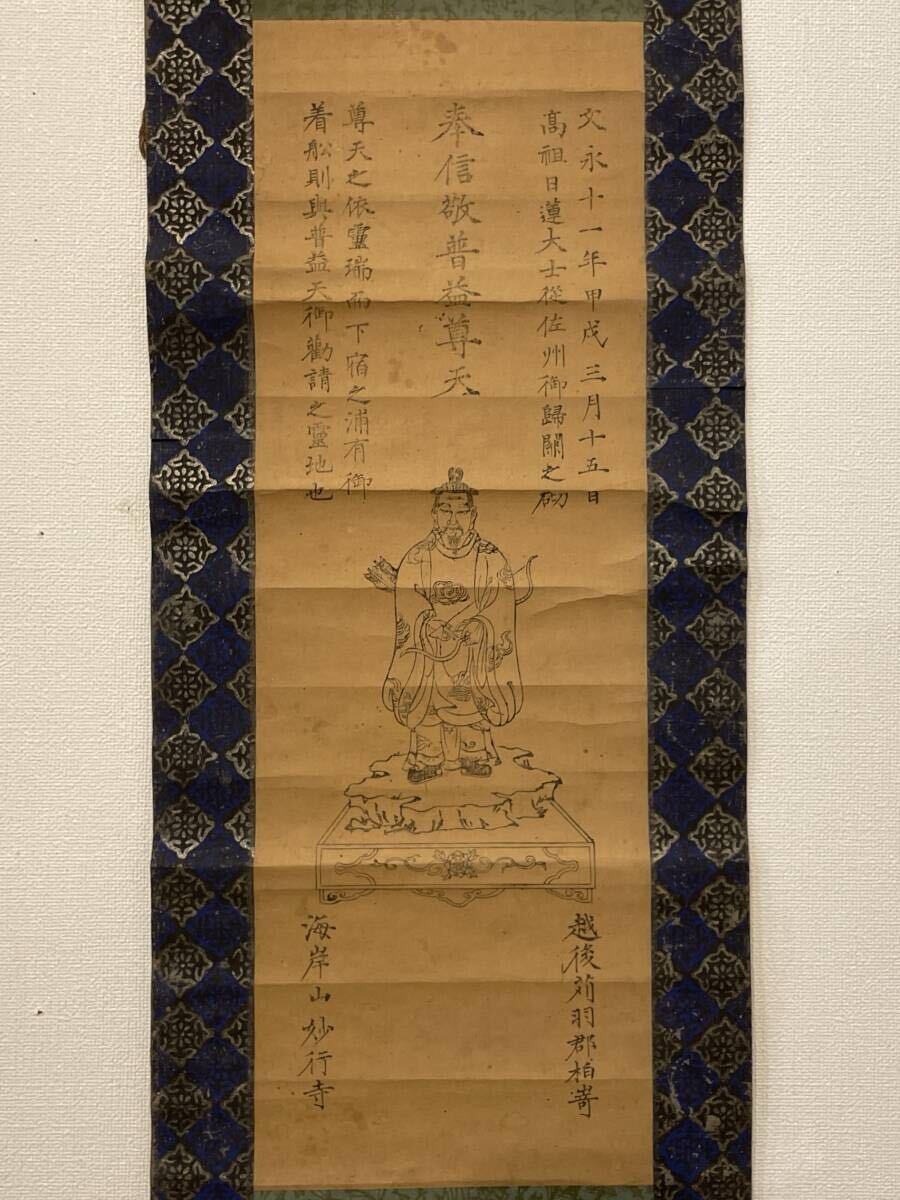 文永十一年甲戌三月十五日
高祖日蓮大士從佐州御歸關之砌
奉信敬普益尊天
尊天之依靈瑞而下宿之浦有御
着舩則與普益天御勸請之靈地也
越後苅羽郡柏嵜
海岸山妙行寺